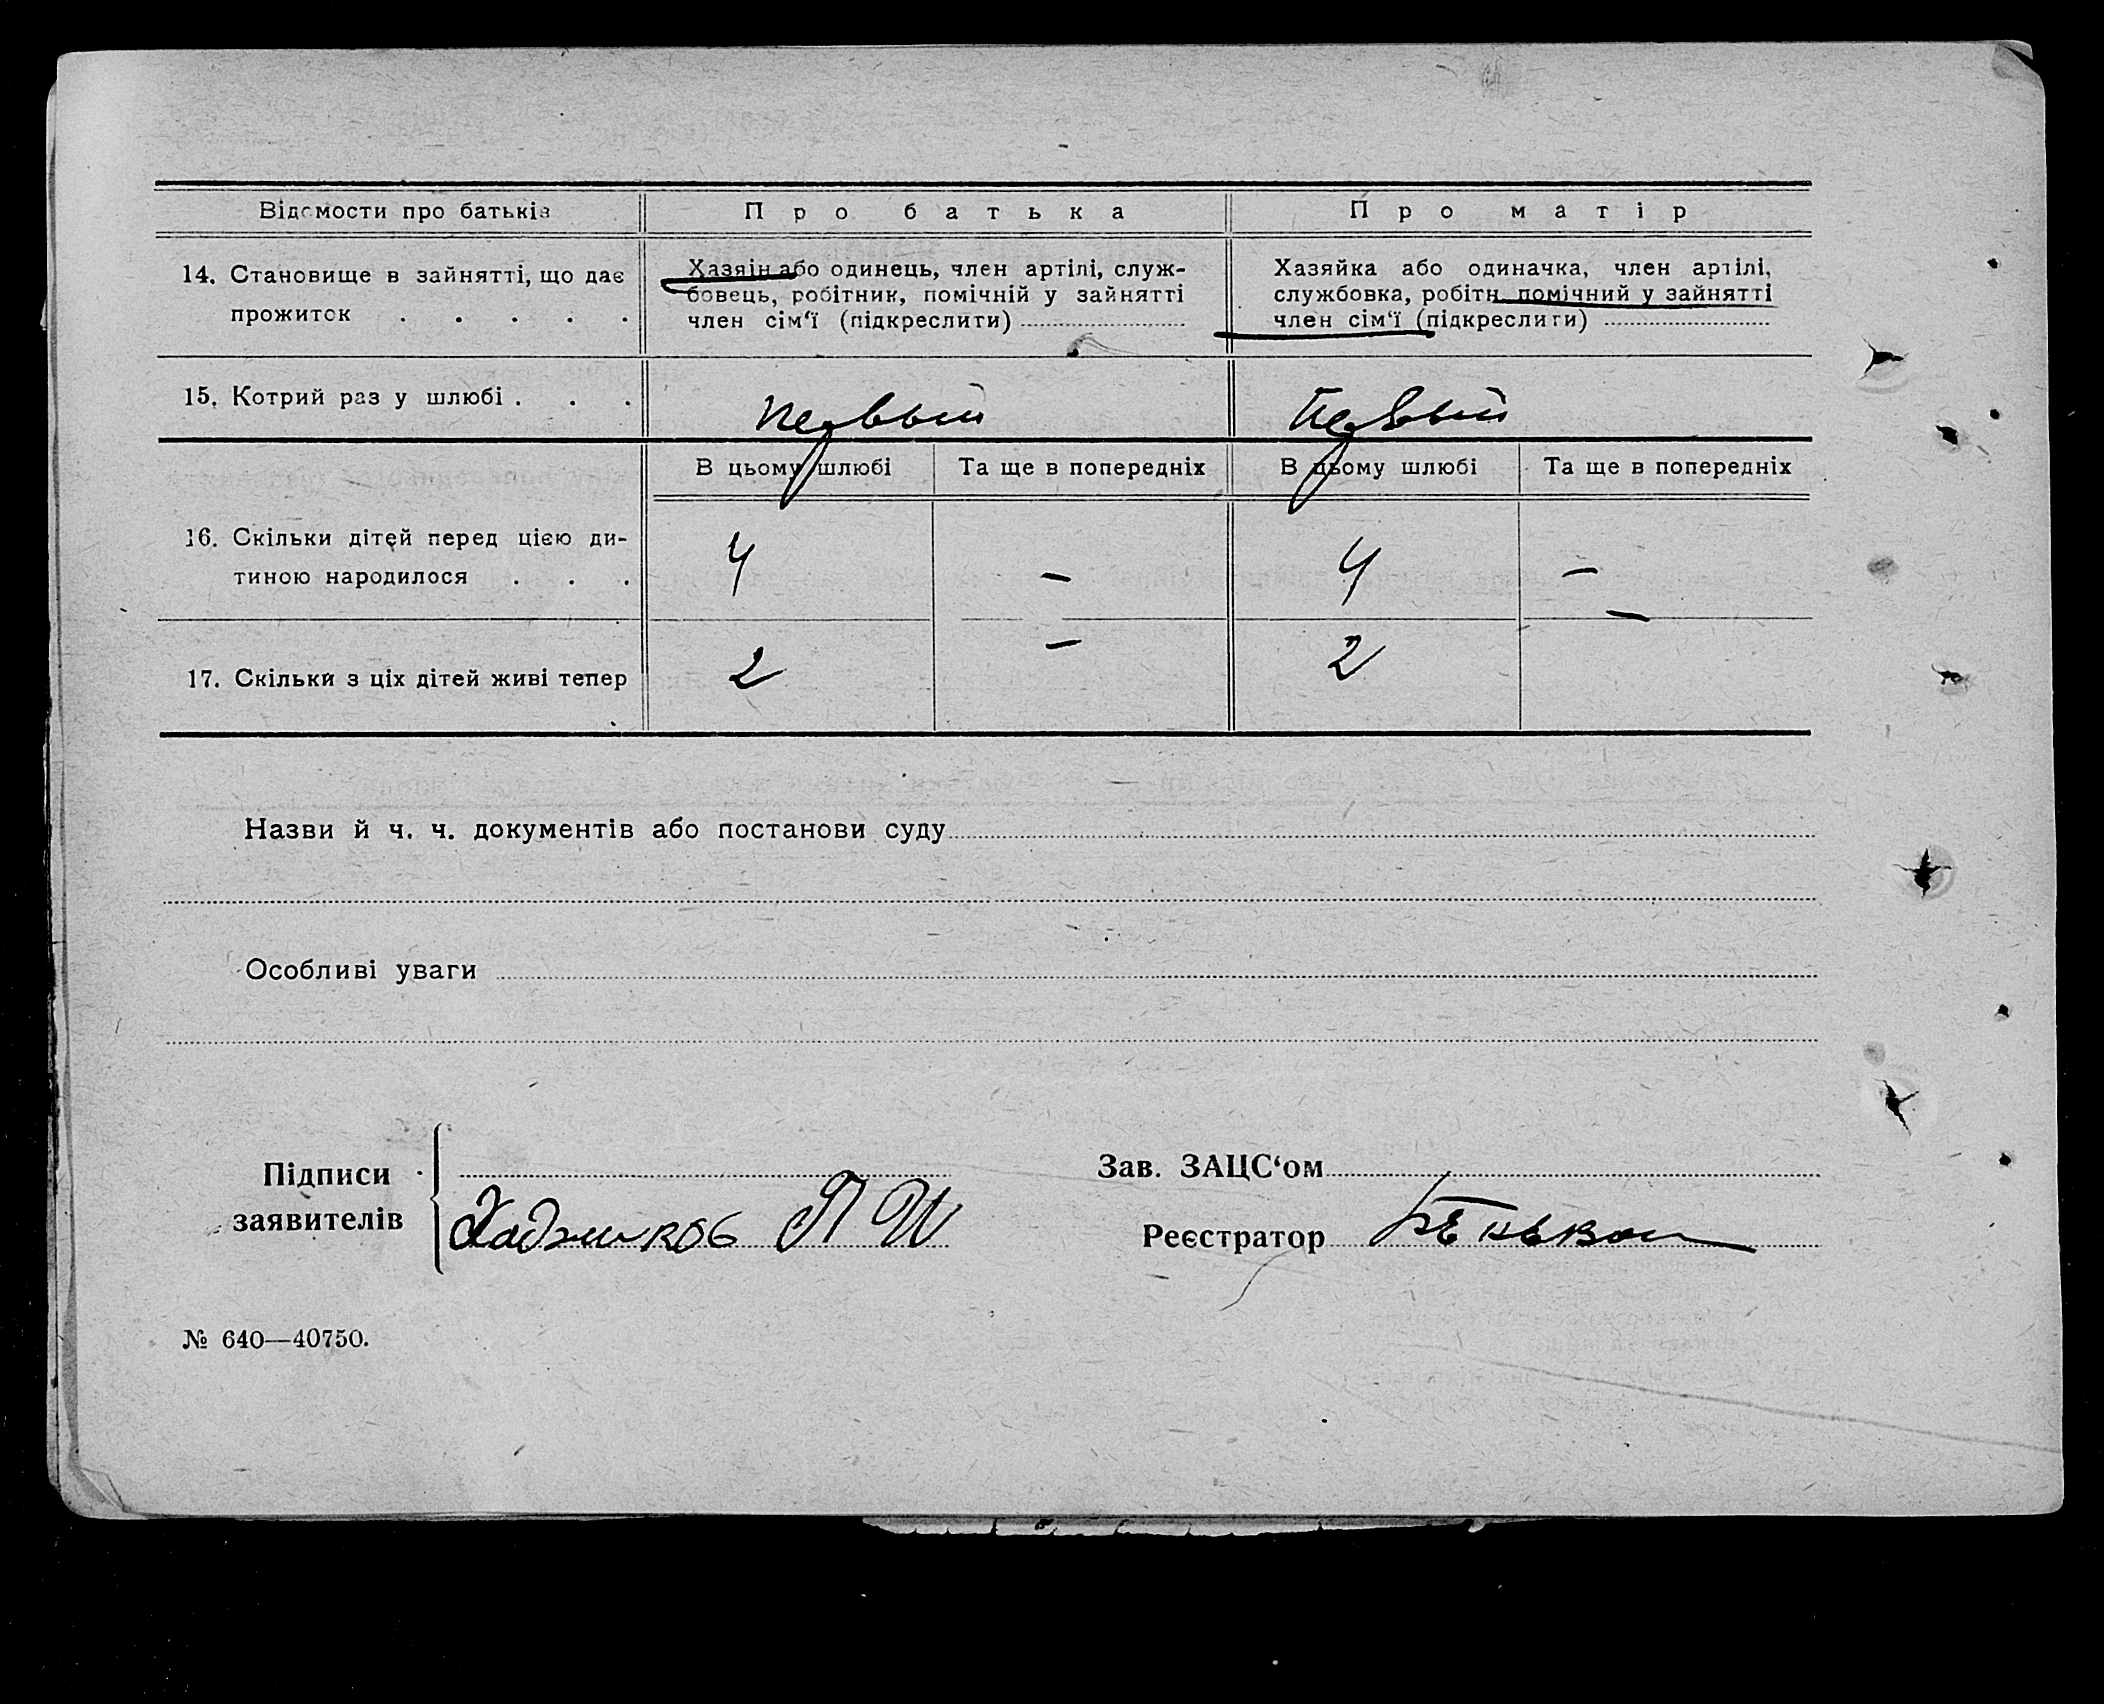 Відомости про батьків
Про батька
Про матір
14. Становище в зайнятті, що дає
прожиток . . . . .
Хазяін або одинець, член артілі, служ-
бовець, робітник, помічній у зайнятті
член сім‘ї (підкреслити)
Хазяйка або одиначка, член артілі,
службовка, робітн. помічний у зайнятті
член сім‘ї (підкреслити)
15. Котрий раз у шлюбі . . .
первый
Первый
В цьому шлюбі
Та ще в попередніх
В цьому шлюбі
Та ще в попередніх
16. Скільки дітей перед цією ди-
тиною народилося . . .
4
–
4
–
17. Скільки з ціх дітей живі тепер
2
–
2
–
Назви й ч. ч. документів або постанови суду
Особливі уваги
Підписи
заявителів
Хаджинов П И
Зав. ЗАЦС‘ом
Реєстратор
№ 640—40750.